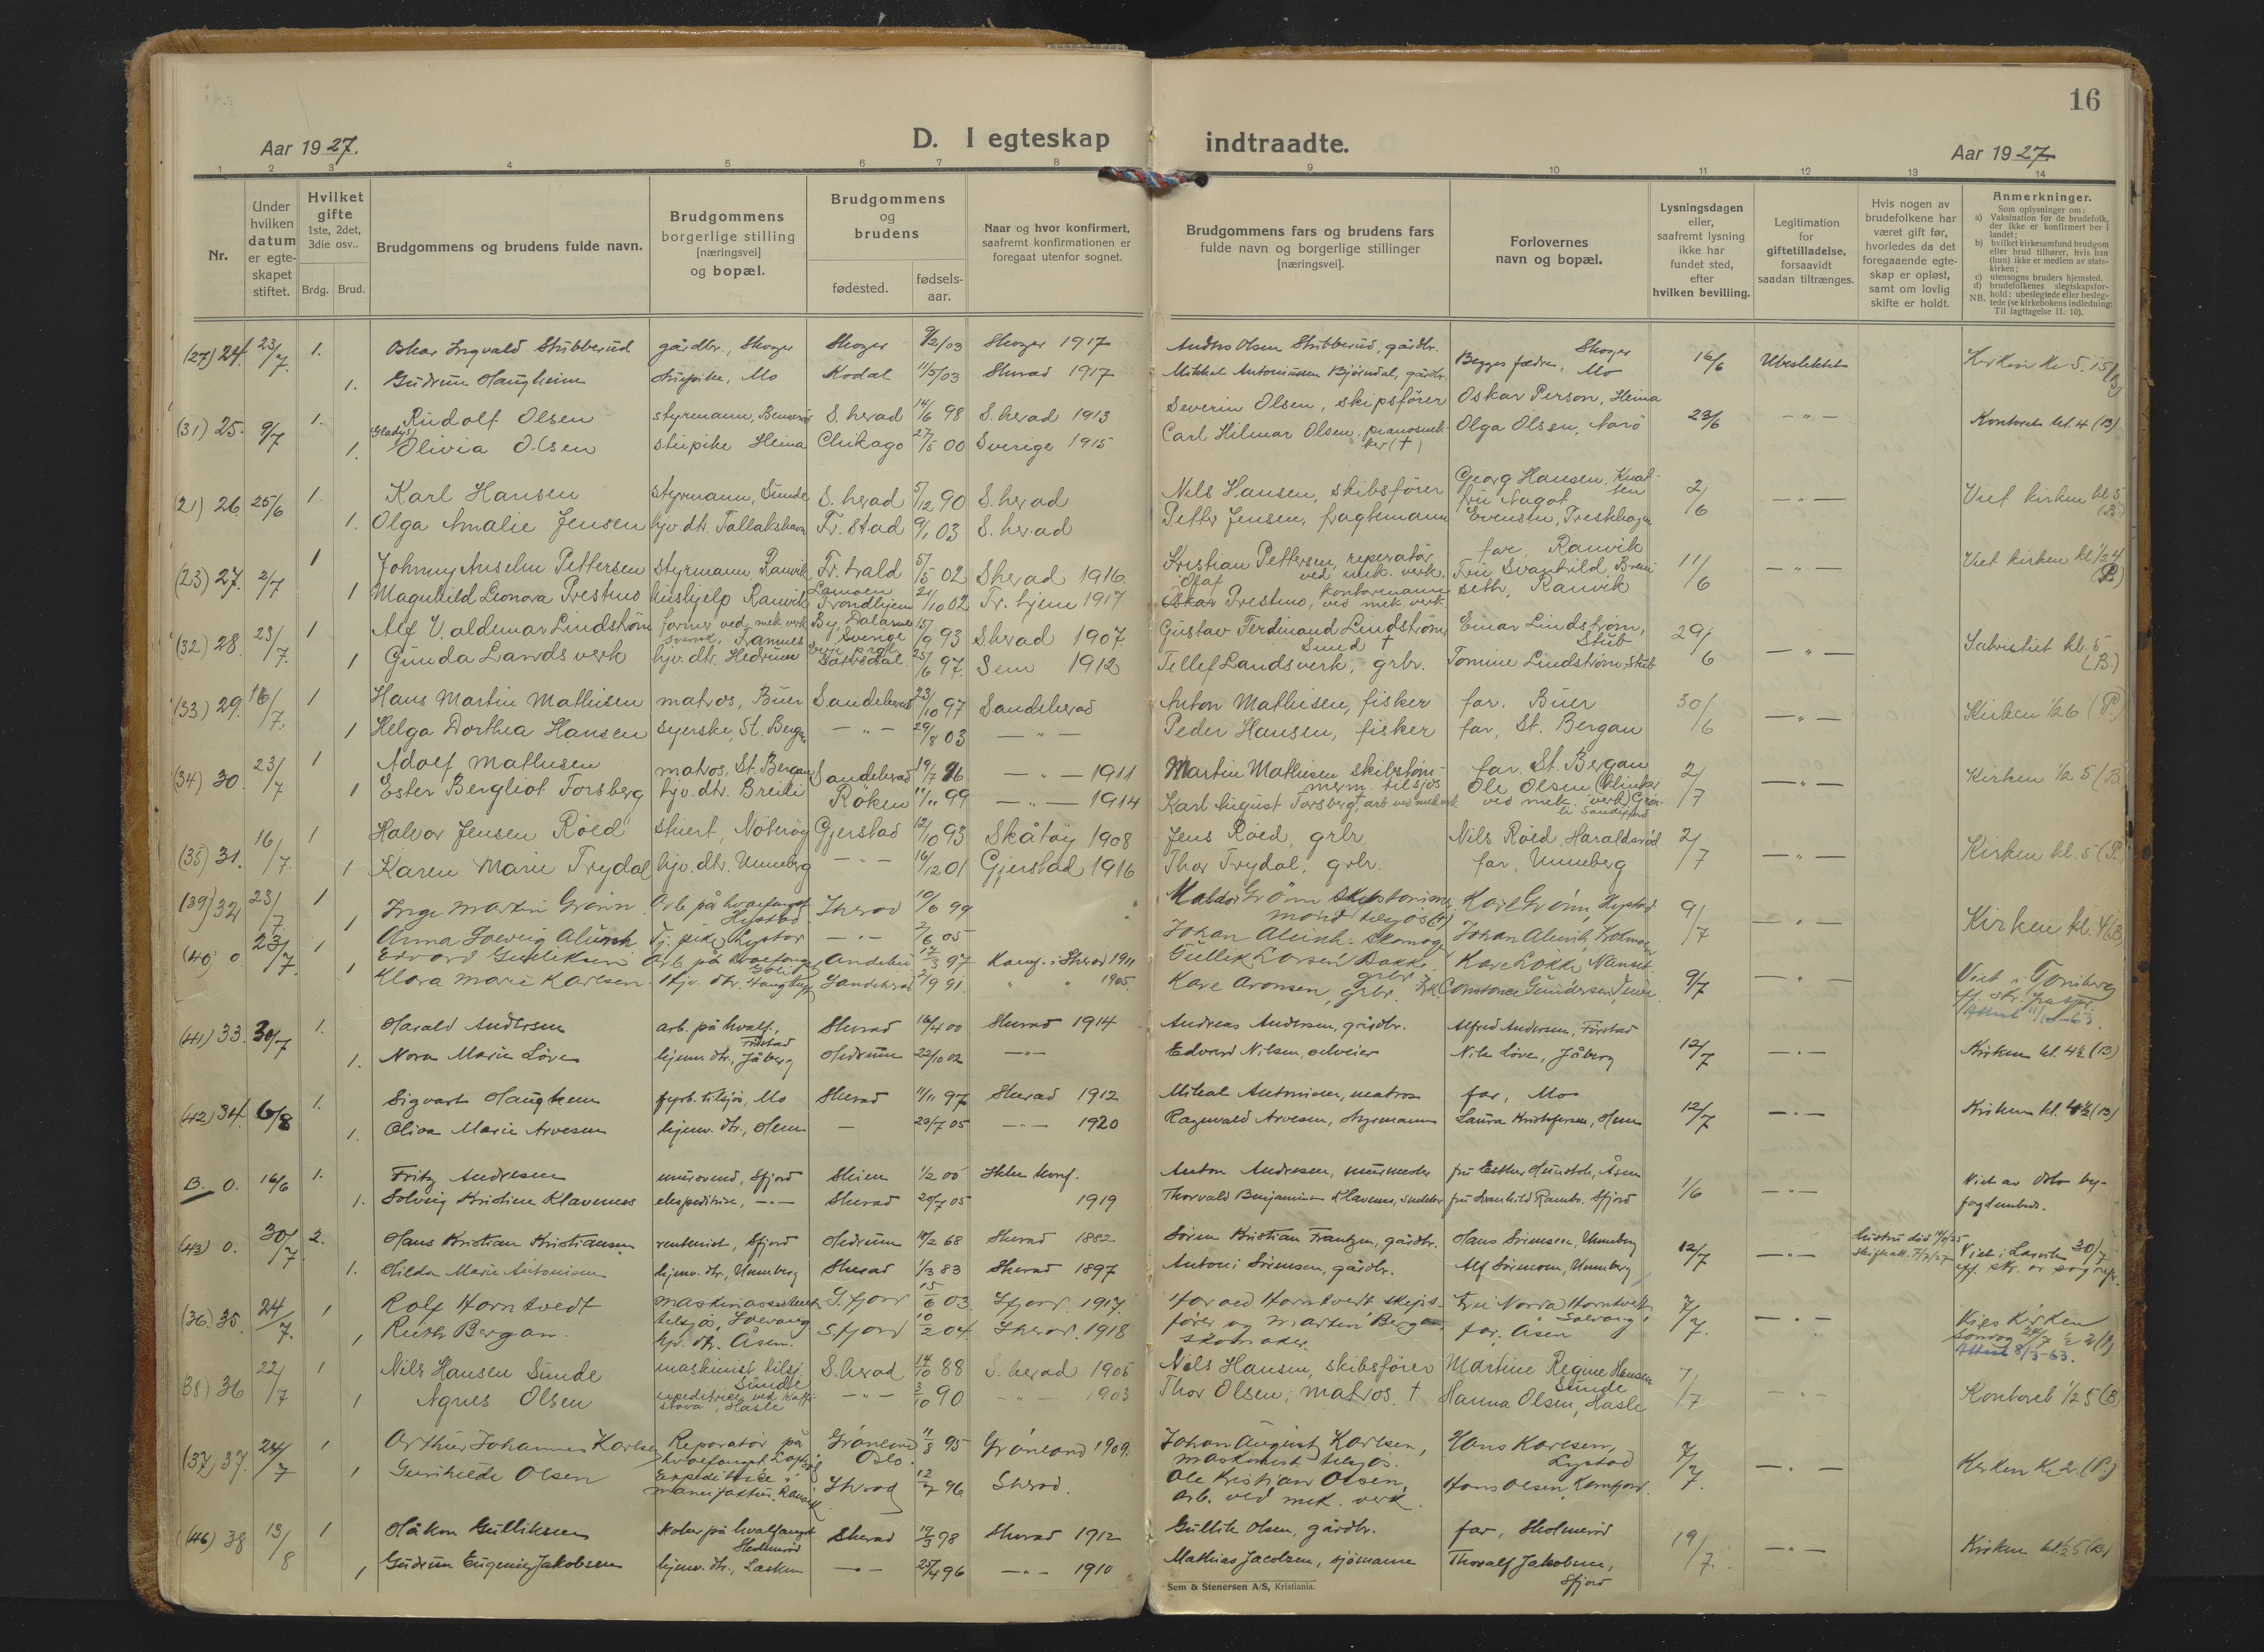 16
Aar 1927.
D. I egteskap indtraadte.
Aar 1927
1 2 3 4 5 6 7 8 9 10 11 12 13 14
Nr.
Under hvilken datum er egteskapet stiftet.
Hvilket gifte 1ste, 2det, 3die osv..
Brdg. Brud.
Brudgommens og brudens fulde navn.
Brudgommens borgerlige stilling [næringsvei] og bopæl.
Brudgommens og brudens
fødested.
fødselsaar.
Naar og hvor konfirmert, saafremt konfirmationen er foregaat utenfor sognet.
Brudgommens fars og brudens fars fulde navn og borgerlige stillinger [næringsvei].
Forlovernes navn og bopæl.
Lysningsdagen eller, saafremt lysning ikke har fundet sted, efter hvilken bevilling.
Legitimation for giftetilladelse, forsaavidt saadan tiltrænges.
Hvis nogen av brudefolkene har været gift før, hvorledes da det foregaaende egteskap er opløst, samt om lovlig skifte er holdt.
Anmerkninger.
Som oplysninger om:
a) Vaksination for de brudefolk, der ikke er konfirmert her i landet;
b) hvilket kirkesamfund brudgom eller brud tilhører, hvis han (hun) ikke er medlem av statskirken;
c) utensogns bruders hjemsted.
d) brudefolkenes slegtskapsforhold: ubeslegtede eller beslegtede (se kirkebokens indledning: Til iagttagelse II. 10).
NB.
(27) 24. 23/7. 1. Oskar Ingvald Stubberud gårdbr., Skoger Skoger 9/2/03 Skoger 1917 Anders Olsen Stubberud, gårdbr. Skoger
1. Gudrun Haugheim Mo Kodal 11/5/03 Sherad 1917 Mikkel Antoniussen Bjørndal, gårdbr. Begges fædre, Mo 16/6 Ubeslektet
(31) 25. 9/7 1. Rudolf Olsen styrmann, S. herad 14/6 98 S. herad 1913 Severin Olsen, skipsfører Oskar Person, Heina 23/6 - " -
(Gladys) 1. Olivia Olsen Heina Chikago 27/5 00 Sverige 1915 Carl Hilmar Olsen, (†) Olga Olsen, Narö Kontoret kl. 4 (B)
(21) 26 25/6 1. Karl Hansen styrmann, Sunde S. herad 5/12 90 S. herad Nils Hansen, skibsfører Georg Hansen, 2/6 - " - Viet kirken kl 5 (B)
1. Olga Amalie Jensen hjv. dtr. Fr. stad 9/1 03 S. herad Petter Jensen, fragtemann Evensen,
(23) 27. 2/7 1 Johnny Anselm Pettersen styrmann Ranvik Fr. hald 5/5 02 Sherad 1916. Kristian Pettersen, reperatör ved mek. verk. far, Ranvik 11/6 - " - Viet kirken kl 1/2 4 (P.)
1 Magnhild Leonora Prestmo hushjelp Ranvik Trondhjem 21/10 02 Tr. hjem 1917 Olaf Prestmo, kontormann ved mek. verk. Fru Svanhild Ranvik
(32) 28. 23/7. 1 Alf Valdemar Lindstrøm former ved mek verk By, Dalarne Sverige 15/9 93 Sherad 1907. Gustav Ferdinand Lindstrøm, Smed † Einar Lindstrøm, Stub 29/6 - " - Sakristiet kl. 5 (B.)
1 Gunda Landsverk hjv. dtr. Hedrum 25/6 97. Sem 1912 Tellef Landsverk, grbr. Tomine Lindstrøm, Stub
(33) 29. 16/7. 1 Hans Martin Mathisen matros, Buer Sandeherad 23/10 97 Sandeherad Anton Mathisen, fisker far, Buer 30/6 - " - Kirken 1/2 6 (P.)
1 Helga Dorthea Hansen syerske, St. Bergan - " - 29/8 03 - " - Peder Hansen, fisker far, St. Bergan
(34) 30. 23/7 1 Adolf Mathisen matros, St. Bergan Sandeherad 19/7 96 - " - 1911 Martin Mathisen tilsjøs far. St. Bergan 2/7 - " - Kirken 1/2 5 (B
1 Ester Bergliot Forsberg hjv. dtr. Breili Röken 11/11 99 - " - 1914 Karl August Forsberg, arb. ved mek verk Ole Olsen (Klinker ved mek. verk)
(35) 31. 16/7. 1 Halvor Jensen Röed stuert, Nøterøy Gjerstad 12/10 93 Skåtøy 1908 Jens Röed, grbr. Nils Röed, Haraldsröd 2/7 - " - Kirken kl. 5 (P.
1 Karen Marie Trydal hjv. dtr. Unneberg - " - 16/12 01 Gjerstad 1916 Thor Trydal, grbr. far, Unneberg
(39) 32 23/7 1 Inge Martin Grönn Arb. på hvalfangst Hystad Sherad 10/6 99 Grönn tilsjøs (†) Karl Grönn, Hystad 9/7 - " - Kirken kl. 4 (B)
1 Anna Solveig Alvink Tj. pike, Lystad - " - 2/6 05 Johan
(40) 0 23/7. 1 Edvard Gulliksen Arb. på hvalfangst Andebu 12/3 97 Konf. i Sherad 1911 Gullik Larsen Bakke, grbr. Kare Løkke, Nanset
1 Klara Marie Karlsen hjv. dtr. Sandeherad 2/9 91. " " 1905. Kare Aronsen, grbr. Constance Gundersen, 9/7 - " - Viet i Tønsberg
(41) 33. 30/7 1. Harald Andersen arb. på hvalf., Sherad 16/4 00 Sherad 1914 Andreas Andersen, gårdbr. Alfred Andersen, 12/7 - " - Kirken kl. 4½ (B)
1. Nora Marie Løve hjemv. dtr., Jåberg Hedrum 22/10 02 - " - Edvard Nilsen, selveier Nils Løve, Jåberg
(42) 34. 6/8 1. Sigvart Haugheim fyrb. tilsjøs, Mo Sherad 11/11 97 Sherad 1912 Mikal Antonisen, matros far, Mo 12/7 - " - Kirken kl. 4½ (B)
1. Oliva Marie Arvesen hjemv. dtr., Hem - 29/7 05 - " - 1920 Ragnvald Arvesen, styrmann Laura Kristofersen, Hem
B. 0. 16/6 1. Fritz Andresen mursvend, Sfjord Skien 1/2 00 Ikke konf. Anton Andresen, murmester fru Esther Åsen 1/6 - " - Viet av Oslo byfogdembede.
1. Solveig Kristine Klavenes ekspeditrise, - " - Sherad 20/7 05 1919 Thorvald Benjaminsen Klavenes, fru Svanhild Sfjord
(43) 0. 30/7. 2. Hans Kristian Kristiansen rentenist, Sfjord Hedrum 18/2 68 Sherad 1882 Sören Kristian Frantzen, gårdbr. Hans Sörensen, Unneberg 12/7 - " - Hustru død Viet i Larvik 30/7
1. Hilda Marie Antonisen hjemv. dtr., Unneberg Sherad 1/3 83 Sherad 1897 Antoni Sörensen, gårdbr. Alf Sörensen, Unneberg
(36.) 35. 24/7. 1 Rolf Horntvedt maskinassistent tilsjös, Solvang S. fjord 15/6 03. Sfjord. 1917. Horntvedt skipsfører Fru Norra Horntvedt Solvang 7/7. - " - Kirken Søndag 24/7
1 Ruth Bergan. hjv. dtr. Åsen. Sfjord 10/2 04. Sherad. 1918 Martin Bergan, skomaker. far. Åsen Attest 8/3-63.
(38) 36 22/7 1 Nils Hansen Sunde maskinist tilsj. Sunde S. herad 14/10 88 S. herad 1905 Nils Hansen, skibsfører Martine Regine Hansen Sunde 7/7 - " - Kontoret 1/2 5 (B
1 Agnes Olsen Hasle - " - 3/10 90 - " - 1903 Thor Olsen, matros. † Hanna Olsen, Hasle
(37) 37. 24/7 1 Arthur Johannes Karlsen Reparatør på hvalfangst Grönland Oslo. 11/8 95 Grönland 1909. Johan August Karlsen, maskinist tilsjös. Hans Karlsen, Lystad 7/7. - " - Kirken kl 2. (P.)
1 Gunhilde Olsen Expeditrice i manufaktur, Ranvik Sherad 12/7 96 Sherad. Ole Kristian Olsen, arb. ved mek. verk. Hans Olsen,
(46) 38 13/8 1 Håkon Gulliksen på hvalfangst Sherad 19/3 98 Sherad 1912 Gullik Olsen, gårdbr. far, 19/7. - " - Kirken kl. ½ 5 (B)
1 Gudrun Eugenie Jakobsen hjemv. dtr., - " - 25/4 96 - " - 1910 Mathias Jacobsen, sjømann Thoralf Jakobsen, Sfjord
Sem & Stenersen A/S, Kristiania.